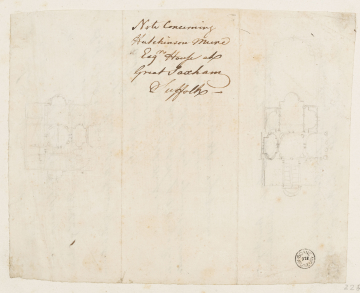 Note Concerning
Hutchinson Mure
Esqr. House at
Great Saxham
Suffolk